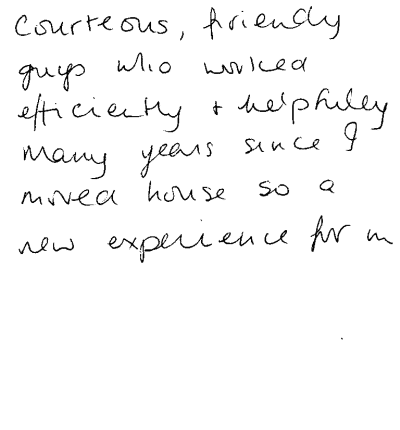 Courteous, friendly
guys who worked
efficiently + helpfully
Many years since I
moved house so a
new experience for m